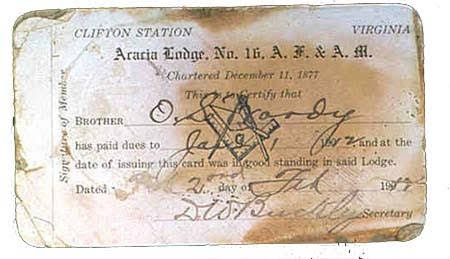 CLIFTON STATION VIRGINIA
Acacia Lodge, No. 16, A. F. & A. M.
Chartered December 11, 1877
This is to Certify that
BROTHER O.
has paid dues to Jan 1 and at the
date of issuing this card was in good standing in said Lodge.
Dated 2nd day of Feb
D W Buckly Secretary
Signature of Member